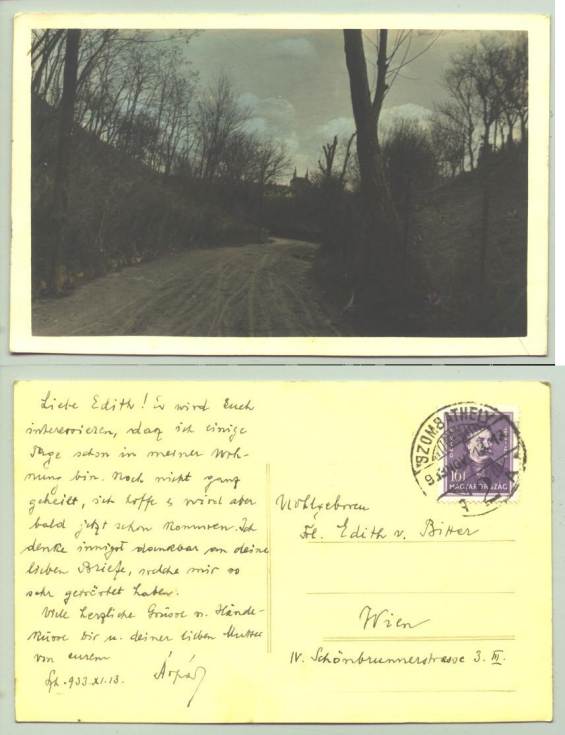 Liebe Edith! Es wird Euch
interessieren, daß ich einige
Tage schon in meiner Woh-
nung bin. Noch nicht ganz
geheilt, ich hoffe es wird aber
bald jetzt schon kommen. Ich
denke innigst dankbar an deine
lieben Briefe, welche mir so
sehr getröstet haben.
Viele herzliche Grüsse u. Hände-
küsse dir u. deiner lieben Mutter
von eurem
Árpád
933.XI.13.
SZOMBATHELY
10
MAGYARORSZÁG
Wohlgeboren
Frl. Edith v. Bitter
Wien
IV. Schönbrunnerstrasse 3. III.